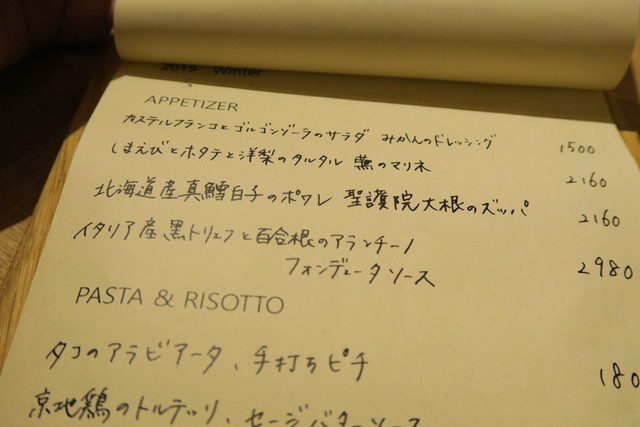 2019 Winter
APPETIZER
カステルフランコと ゴルゴンゾーラのサラダ みかんのドレッシング 1500
しまえびとホタテと洋梨のタルタル 蕪のマリネ 2160
北海道産真鱈白子のポワレ 聖護院大根のズッパ 2160
イタリア産黒トリュフと百合根のアランチーノ
フォンデュータソース 2980
PASTA & RISOTTO
タコのアラビアータ、手打ちピチ 180
京地鶏のトルテッリ、セージバターソース